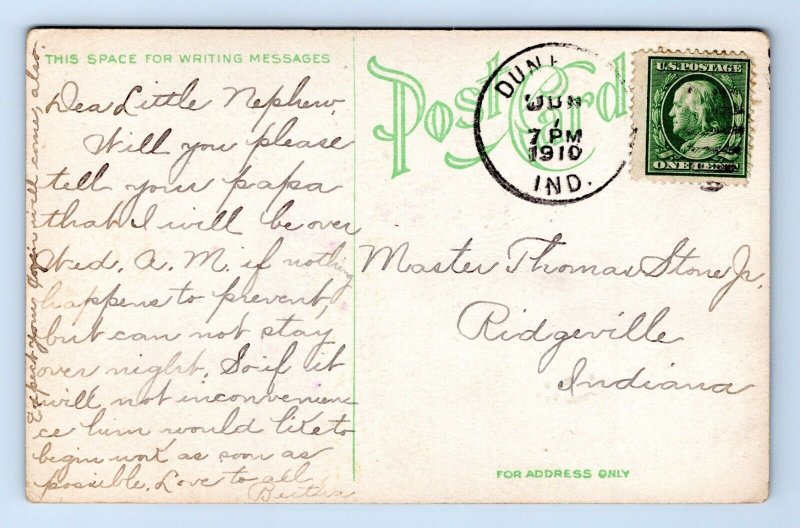 THIS SPACE FOR WRITING MESSAGES
Dea Little Nephew.
Will you please
tell your papa
that I will be over
Wed. A. M. if nothing
happens to prevent,
but can not stay
over night. So if it
will not inconvenien
ce him would like to
begin work as soon as
possible. Love to all
Bertha
will come, also.
Post Card
DUN
JUN
7 PM
1910
IND.
U.S. POSTAGE
ONE CENT
Master Thomas Stone Jr.
Ridgeville
Indiana
FOR ADDRESS ONLY